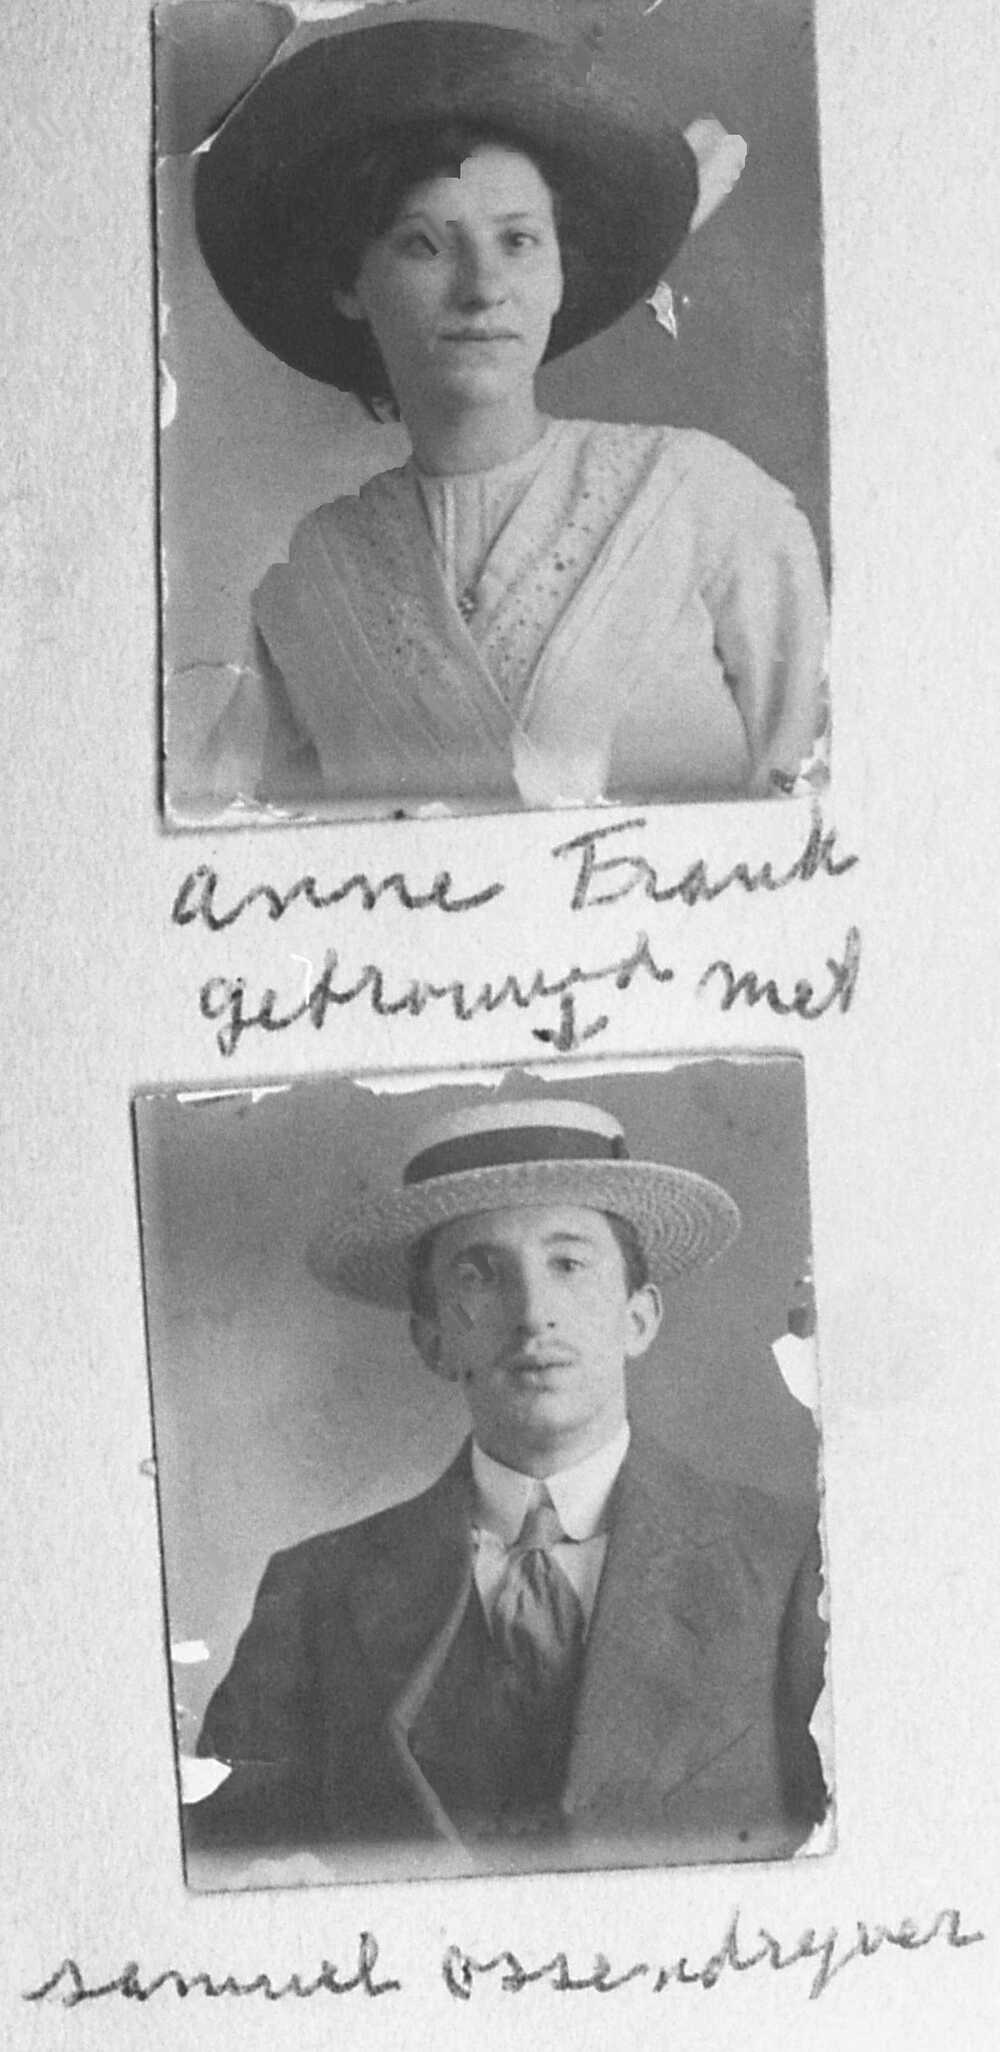 anne Frank
getrouwd met
samuel ossendryver